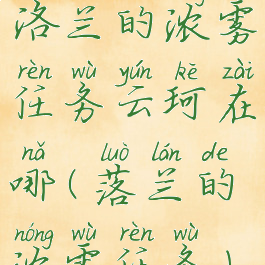 洛兰的浓雾
rèn wù yún kē zài
任务云珂在
nǎ luò lán de
哪(落兰的
nóng wù rèn wù
浓雾任务)